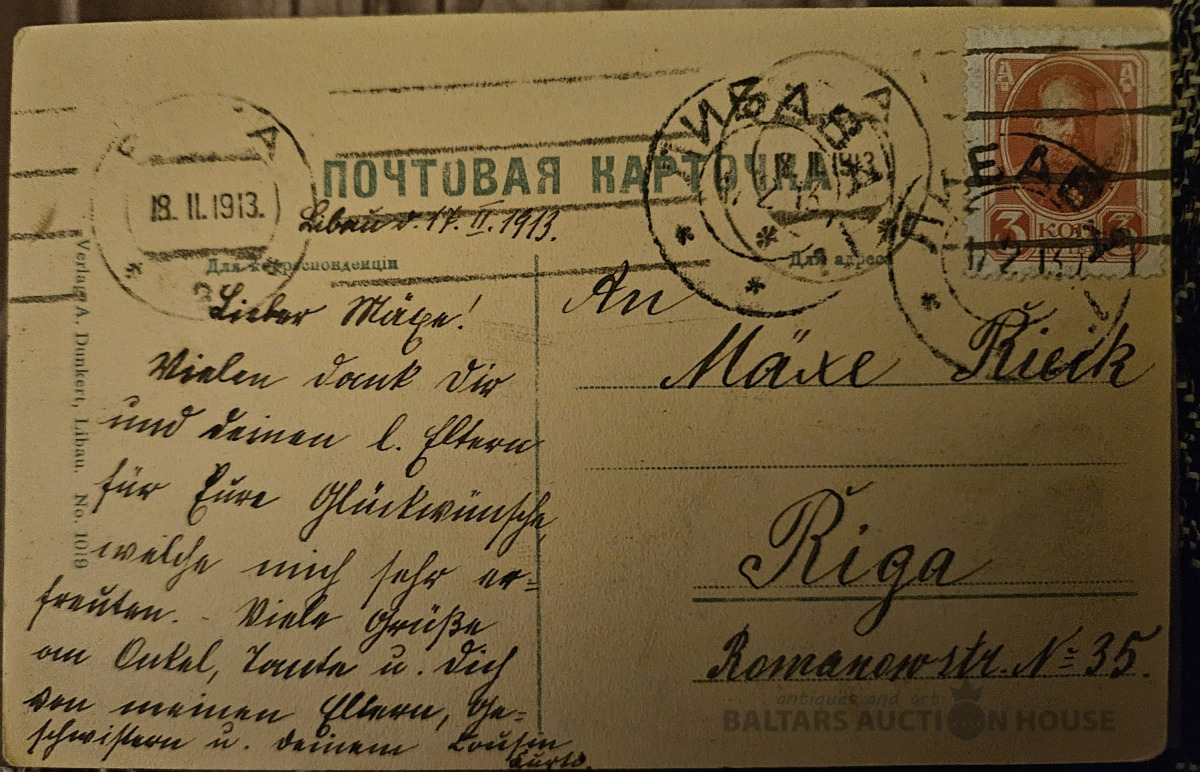 ПОЧТОВАЯ КАРТОЧКА
Libau d. 17. II. 1913.
Для корреспонденціи
Для адреса
18. II. 1913.
ЛИБАВА
17 2 13
ЛИБАВА
17 2 13
3 КОП 3
Lieber Mäxe!
Vielen dank Dir
und deinen l. Eltern
für Eure Glückwünsche,
welche mich sehr er=
freuten. - Viele Grüße
an Onkel, Tante u. Dich
von meinen Eltern, Ge=
schwistern u. deinem Cousin
An
Mäxe Rieck
Riga
Romanowstr. № 35.
Verlag A. Dunkert, Libau. No. 1019
antiques and art
BALTARS AUCTION HOUSE